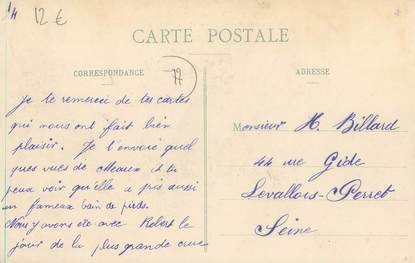 14
12 €
CARTE POSTALE
CORRESPONDANCE
77
ADRESSE
Je te remercie de tes cartes
qui nous ont fait bien
plaisir. Je t'envoie quel
ques vues de Meaux et tu
peux voir qu'elle a pris aussi
un fameux bain de pieds.
Nous y avons été avec Robert le
jour de la plus grande crue
Monsieur H. Billard
44 rue Gide
Levallois-Perret
Seine